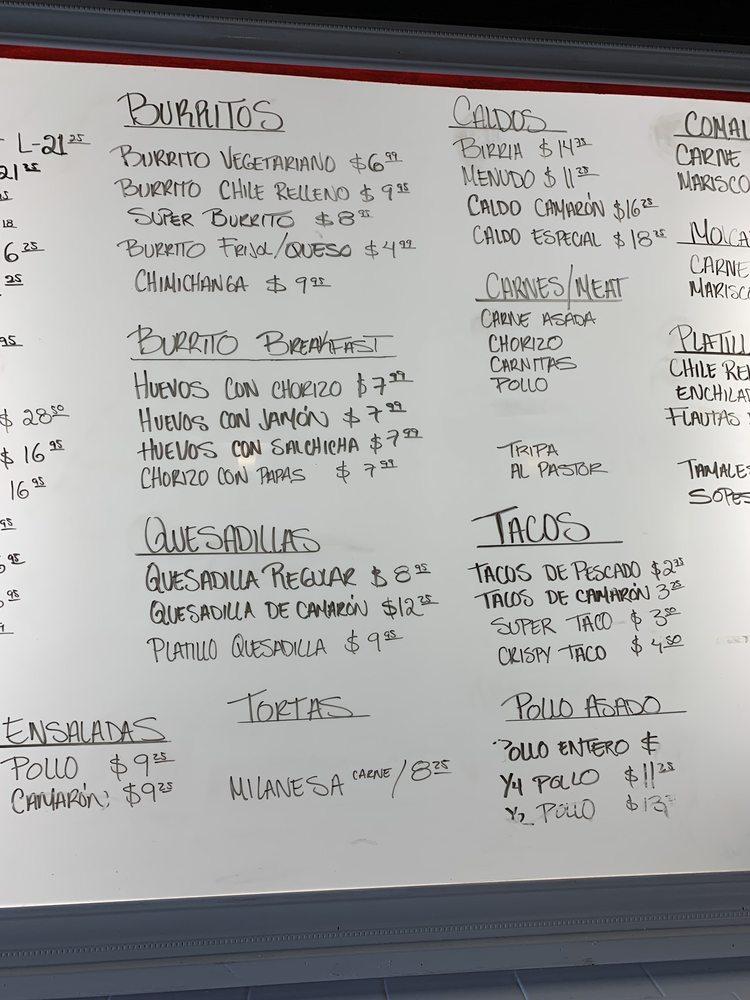 L-21 25
21 25
18
6 25
25
95
$ 28 50
$ 16 95
16 95
95
95
95
BURRITOS
BURRITO VEGETARIANO $6 99
BURRITO CHILE RELLENO $ 9 95
SUPER BURRITO $ 8 95
BURRITO FRIJOL/QUESO $ 4 99
CHIMICHANGA $ 9 95
BURRITO BREAKFAST
HUEVOS CON CHORIZO $ 7 99
HUEVOS CON JAMÓN $ 7 99
HUEVOS CON SALCHICHA $ 7 99
CHORIZO CON PAPAS $ 7 99
QUESADILLAS
QUESADILLA REGULAR $ 8 95
QUESADILLA DE CAMARÓN $12 25
PLATILLO QUESADILLA $ 9 95
ENSALADAS
POLLO $ 9 25
CAMARÓN: $9 25
TORTAS
MILANESA CARNE / 8 25
CALDOS
BIRRIA $ 14 35
MENUDO $ 11 25
CALDO CAMARÓN $16 25
CALDO ESPECIAL $ 18 25
CARNES/MEAT
CARNE ASADA
CHORIZO
CARNITAS
POLLO
TRIPA
AL PASTOR
TACOS
TACOS DE PESCADO $2 95
TACOS DE CAMARÓN 3 25
SUPER TACO $ 3 50
CRISPY TACO $ 4 50
POLLO ASADO
POLLO ENTERO $
1/4 POLLO $11 25
1/2 POLLO $13
COMAL
CARNE
MARISCO
MOLCA
CARNE
MARISC
PLATILL
CHILE REL
ENCHILAD
FLAUTAS
TAMALES
SOPES